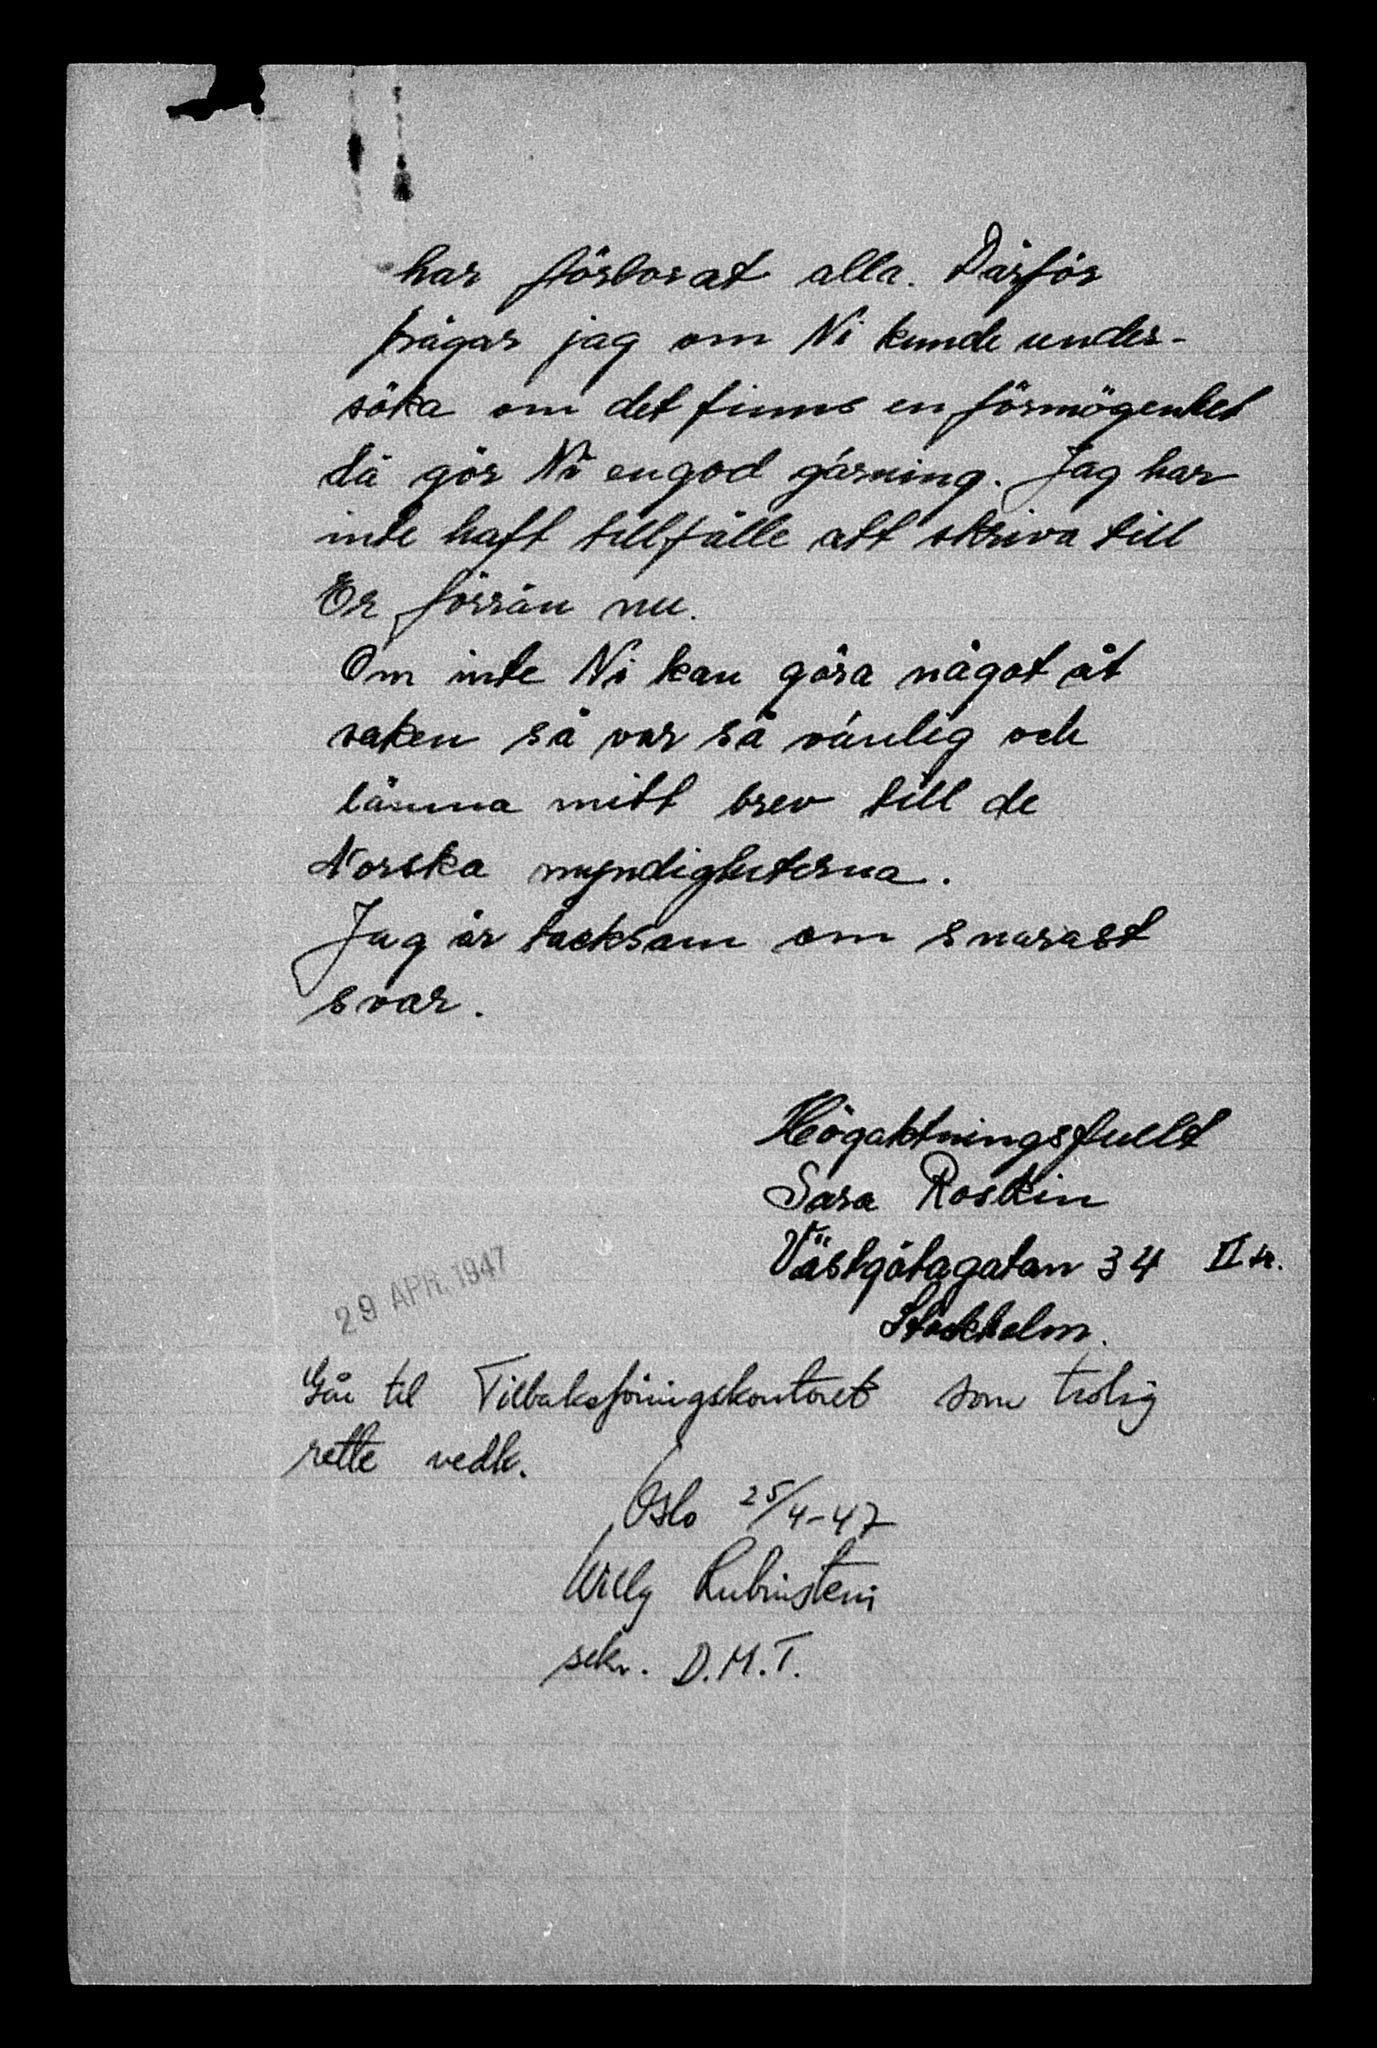 har förlorat alla. Därför
frågar jag om Ni kunde under-
söka om det finns en förmögenhet
då gör Ni en god gärning. Jag har
inte haft tillfälle att skriva till
Er förrän nu.
Om inte Ni kan göra något åt
saken så var så vänlig och
lämna mitt brev till de
Norska myndigheterna.
Jag är tacksam om snarast
svar.
Högaktningsfullt
Sara Roskin
Västgötagatan 34 II tr.
Stockholm.
29 APR. 1947
Går til Tilbakeføringskontoret som trolig
rette vedk.
Oslo 25/4-47
Willy Rubinstein
sekr. D.M.T.